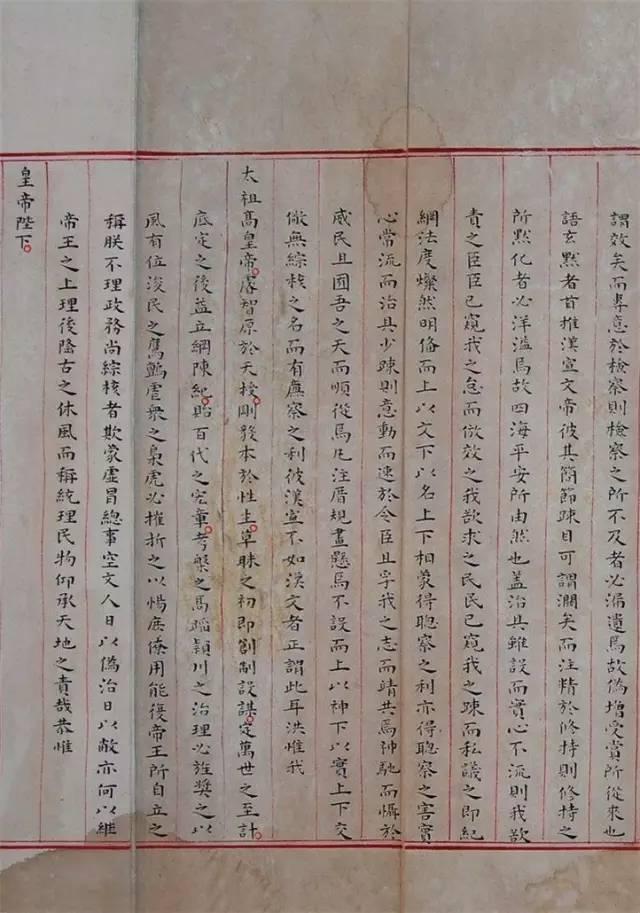 謂效矣而專意於檢察則檢察之所不及者必漏遺焉故偽增受賞所從來也
語玄默者首推漢宣文帝彼其簡節疎目可謂濶矣而注精於修持則修持之
所默化者必洋溢焉故四海平安所由然也蓋治具雖設而實心不流則我欲
責之臣臣已窺我之怠而倣效之我欲求之民民已窺我之疎而私議之即紀
綱法度燦然明偹而上以文下以名上下相蒙得聰察之利亦得聰察之害實
心常流而治具少疎則意動而速於令臣且孚我之志而靖共焉神馳而懾於
威民且囿吾之天而順從焉凡注厝規畫懸焉不設而上以神下以實上下交
儆無綜核之名而有廉察之利彼漢宣不如漢文者正謂此耳洪惟我
太祖高皇帝睿智原於天授剛毅本於性生草昧之初即創制設謀定萬世之至計
底定之後益立綱陳紀貽百代之宏章考槃之馬蹈潁川之治理必旌獎之以
風有位浚民之鷹鸇虐衆之梟虎必摧折之以惕庶僚用能復帝王所自立之
稱朕不理政務尚綜核者欺蒙虛冒總事空文人日以偽治日以敝亦何以繼
帝王之上理後隆古之休風而稱統理民物仰承天地之責哉恭惟
皇帝陛下